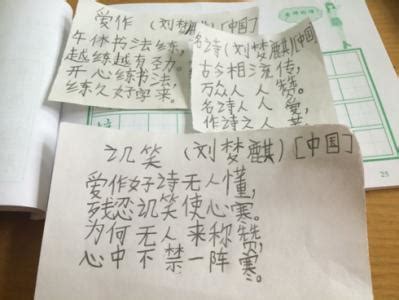 爱作（刘梦麒）[中国]
午休书法练，
越练越有劲。
开心练书法，
练久好字来。
名诗（刘梦麒）[中国
古今相流传，
万众人人赞。
名诗人人爱，
作诗之人
讥笑（刘梦麒）[中国]
爱作好诗无人懂，
残忍讥笑使心寒。
为何无人来称赞，
心中不禁一阵寒。
25